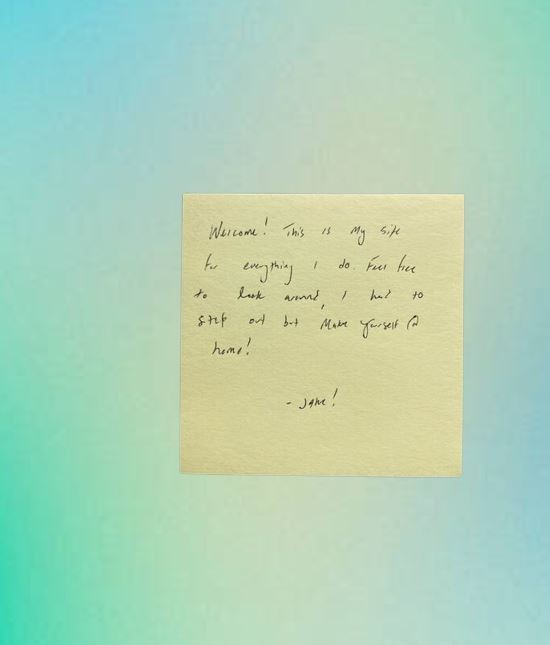 Welcome! This is My site
for everything I do. Feel free
to look around, I had to
step out but Make yourself @
home!
- Jane!